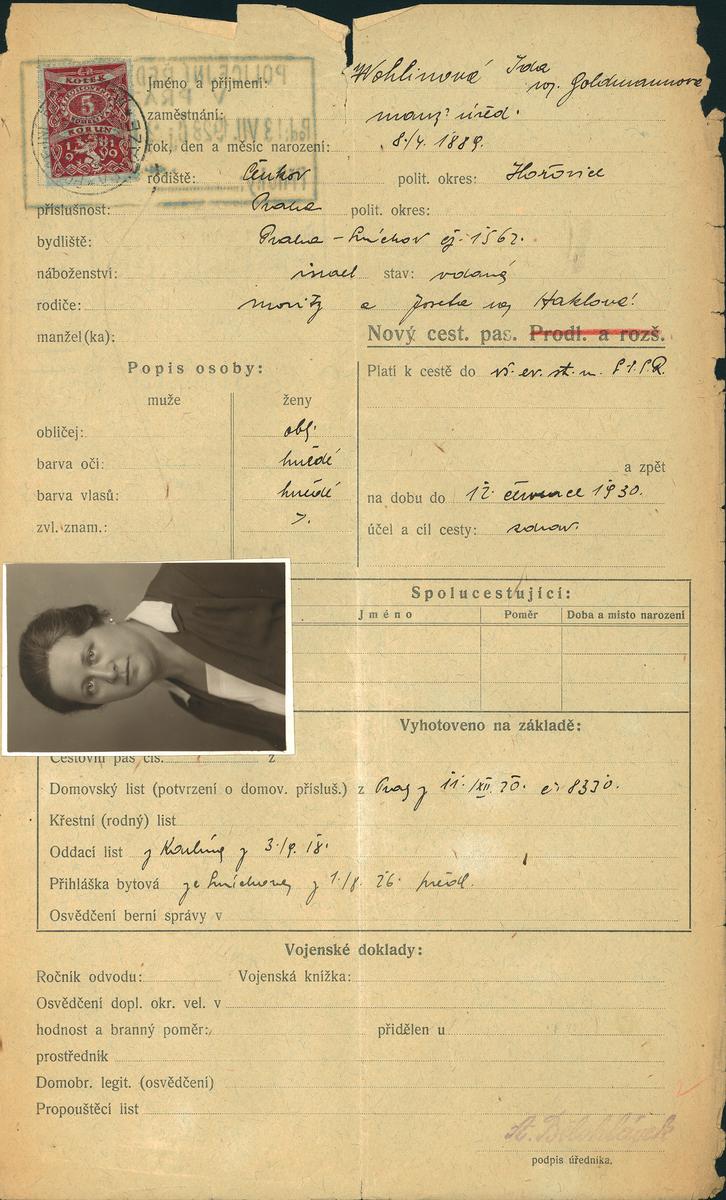 KOLEK
5
KORUN
POLICEJNÍ ŘED
V PRA
13 VII. 1928
Jméno a příjmení: Wohlinová Ida
roz. Goldmannova
zaměstnání: manž. úřed.
rok, den a měsíc narození: 8./4. 1889.
rodiště: Čenkov polit. okres: Hořovice
příslušnost: Praha polit. okres:
bydliště: Praha - Smíchov čj. 1562.
náboženství: israel stav: vdaná
rodiče: Moritz a Josefa roz Haklová
manžel(ka):
Nový cest. pas. Prodl. a rozš.
Popis osoby:
muže ženy
obličej: obl.
barva očí: hnědé
barva vlasů: hnědé
zvl. znam.:
Platí k cestě do vš. ev. st. m.
a zpět
na dobu do 12. července 1930.
účel a cíl cesty: zdrav.
Spolucestující:
Jméno Poměr Doba a místo narození
Vyhotoveno na základě:
Cestovní pas čís. z
Domovský list (potvrzení o domov. přísluš.) z Prahy z 11./XII. 20. č. 8330.
Křestní (rodný) list
Oddací list z Karlína z 3./9. 18.
Přihláška bytová ze Smíchova z 1./8. 26. předl.
Osvědčení berní správy v
Vojenské doklady:
Ročník odvodu: Vojenská knížka:
Osvědčení dopl. okr. vel. v
hodnost a branný poměr: přidělen u
prostředník
Domobr. legit. (osvědčení)
Propouštěcí list
podpis úředníka.